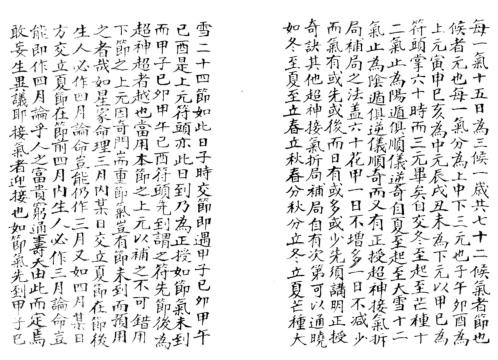 每一氣十五日為三候一歲共七十二候氣者節也
候者元也每一氣分為上中下三元也子午卯酉為
上元寅申巳亥為中元辰戌丑未為下元以甲巳為
符頭掌六十時而三元畢矣自交冬至起至芒種十
二氣止為陽遁俱順儀逆奇自夏至起至大雪十二
氣止為陰遁俱逆儀順奇而又有正授超神接氣拆
局補局之法蓋六十花甲一日不增多一日不減少
而氣有或先或後而日有或多或少先須講明正授
奇訣其他超神接氣拆局補局自有次第可以通曉
如冬至夏至立春立秋春分秋分立冬立夏芒種大
雪二十四節如此日子時交節即遇甲子巳卯甲午
巳酉是上元符頭亦此日到乃為正授如節氣未到
而甲子巳卯甲午巳酉符頭先到謂之符先節後為
超神超者越也當用本節之上元以補之不可錯用
下節之上元因奇門耑重節氣豈有節未到而預用
之者哉如星家命理三月內某日交立夏節在節後
生人必作四月論命豈能仍作三月又如四月某日
方交立夏節在節前四月內生人必作三月論命豈
能即作四月論乎人之富貴窮通壽夭由此而定焉
敢妄生異議耶接氣者迎接也如節氣先到甲子巳